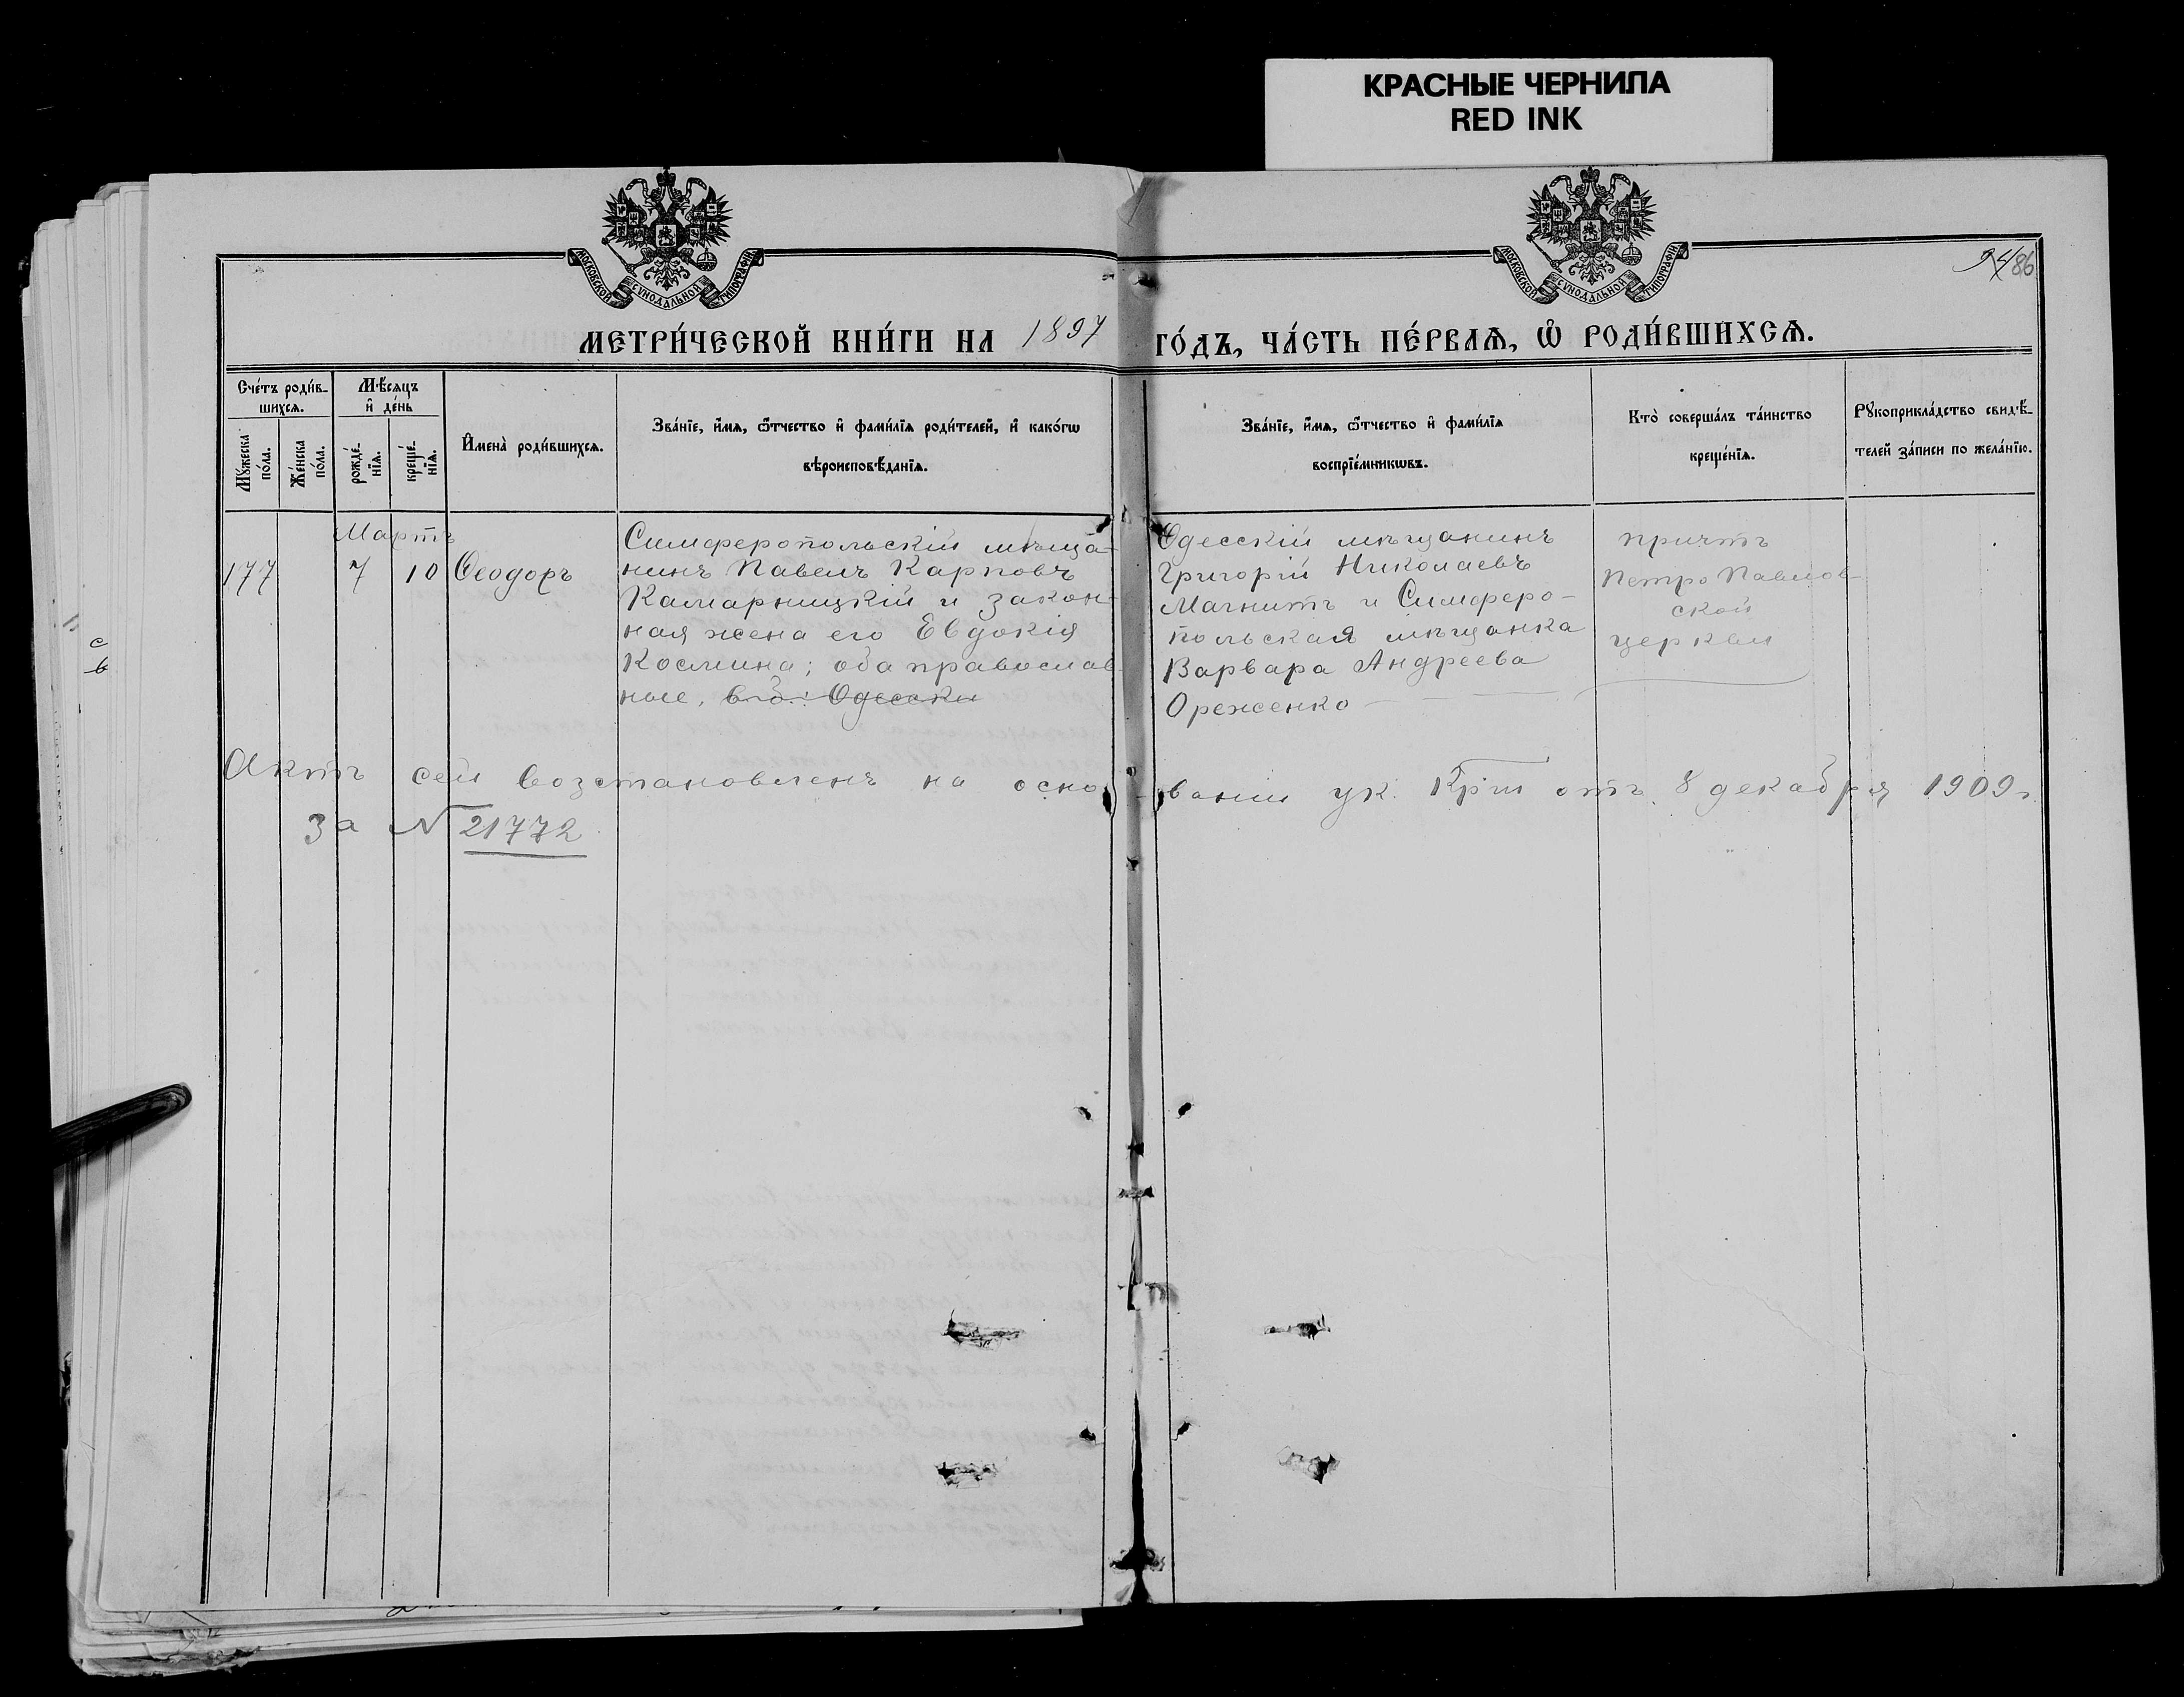 КРАСНЫЕ ЧЕРНИЛА
RED INK
МОСКОВСКОЙ СѴНОДАЛЬНОЙ ТИПОГРАФІИ
МОСКОВСКОЙ СѴНОДАЛЬНОЙ ТИПОГРАФІИ
94/86
МЕТРИ́ЧЕСКОЙ КНИ́ГИ НА 1897 ГО́ДЪ, ЧА́СТЬ ПЕ́РВАѦ, Ѽ РОДИ́ВШИХСѦ.
Сче́тъ роди́в-
шихсѧ.
Мѣ́сѧцъ
и҆ де́нь
Мꙋ́жеска
по́ла.
Же́нска
по́ла.
рожде́-
нїѧ.
креще́-
нїѧ.
И҆мена̀ роди́вшихсѧ.
Зва́нїе, и҆́мѧ, ѻ҆́тчество и҆ фами́лїѧ роди́телей, и҆ како́гѡ
вѣроисповѣ́данїѧ.
Зва́нїе, и҆́мѧ, ѻ҆́тчество и҆ фами́лїѧ
воспрїе́мникѡвъ.
Кто̀ соверша́лъ та́инство
креще́нїѧ.
Рꙋкоприкла́дство свидѣ́-
телей за́писи по жела́нїю.
Мартъ
177 7 10 Ѳеодоръ
Симферопольскій мѣща-
нинъ Павелъ Карповъ
Камарницкій и закон-
ная жена его Евдокія
Космина; оба православ
ные, в г. Одессы
Одесскій мѣщанинъ
Григорій Николаевъ
Магнитъ и Симферо-
польская мѣщанка
Варвара Андреева
Ореженко
причтъ
Петро Павлов-
ской
церкви
Актъ сей возстановленъ на осно-ваніи ук. Крій отъ 8 декабря 1909г.
за № 21772
с
в